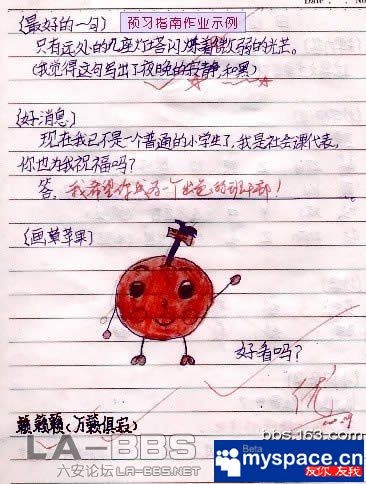 预习指南作业示例
(最好的一句)
只有远处的几座灯塔闪烁着微弱的光芒。
(我觉得这句写出了夜晚的寂静,和黑)
(好消息)
现在我已不是一个普通的小学生了,我是社会课代表,
你也为我祝福吗?
答:我希望你成为一个出色的班干部!
(画草苹果)
好看吗?
优
籁籁籁(万籁俱寂)
LA-BBS
六安论坛 LA-BBS.NET
bbs.163.com
Beta
myspace.cn
友你 友我